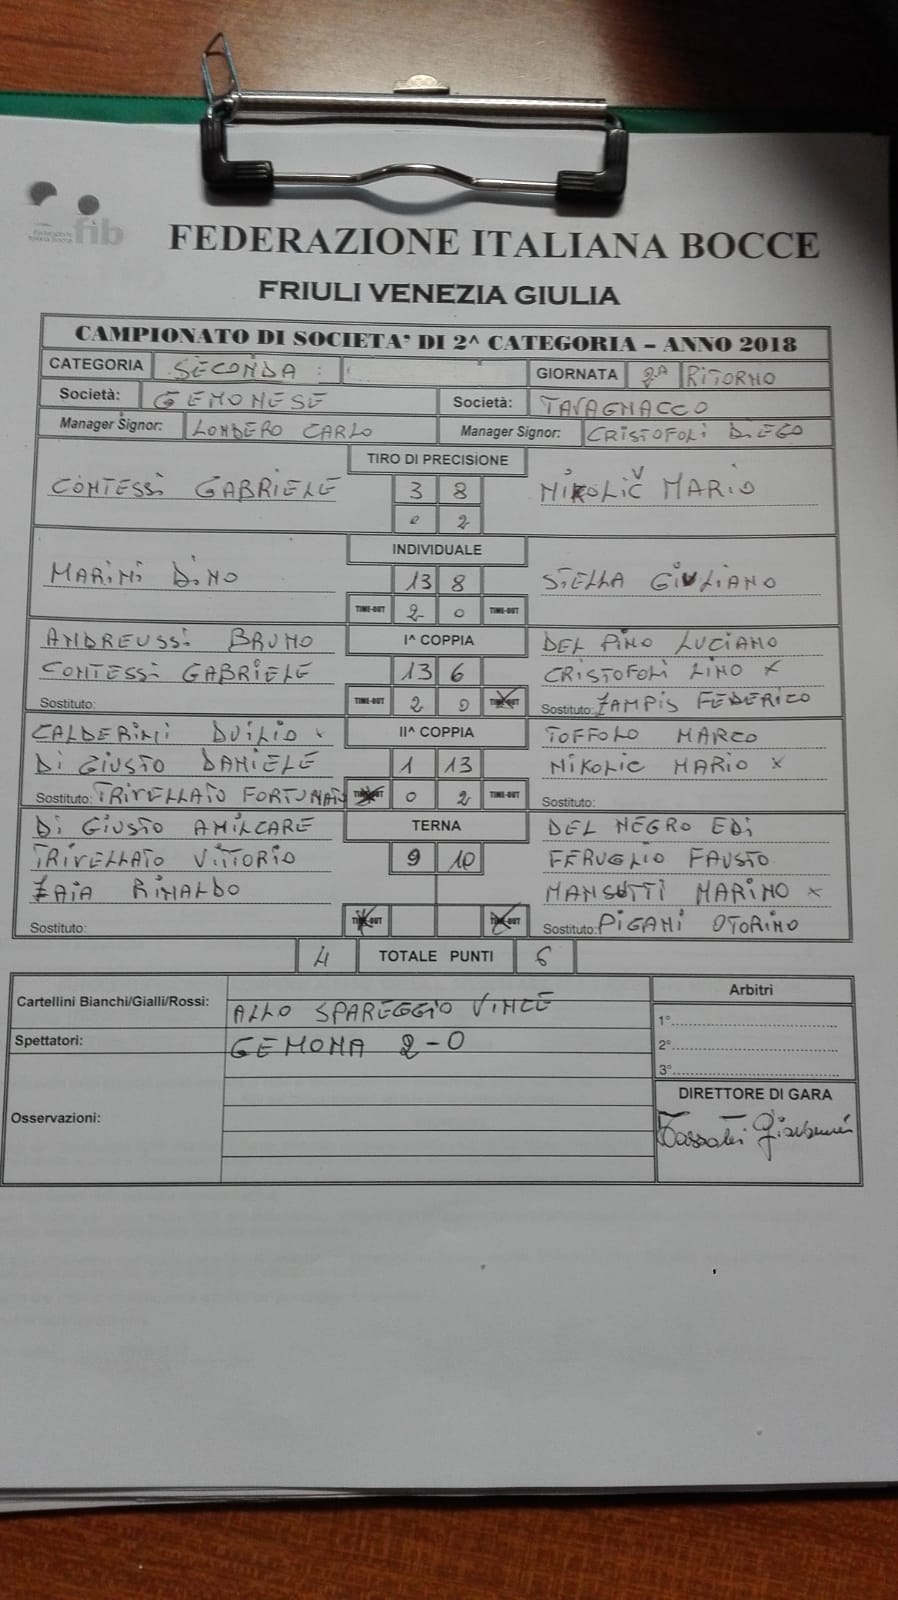 fib
FEDERAZIONE ITALIANA BOCCE
FRIULI VENEZIA GIULIA
CAMPIONATO DI SOCIETA' DI 2^ CATEGORIA – ANNO 2018
CATEGORIA SECONDA : GIORNATA 2A RITORNO
Società: GEMONESE Società: TAVAGNACCO
Manager Signor: LONDERO CARLO Manager Signor: CRISTOFOLI DIEGO
TIRO DI PRECISIONE
CONTESSI GABRIELE 3 8 NIKOLIČ MARIO
0 2
INDIVIDUALE
MARINI DINO 13 8 STELLA GIULIANO
TIME-OUT 2 0 TIME-OUT
ANDREUSSI BRUNO I^ COPPIA DEL PINO LUCIANO
CONTESSI GABRIELE 13 6 CRISTOFOLI LINO X
Sostituto: TIME-OUT 2 0 TIME-OUT Sostituto: ZAMPIS FEDERICO
CALDERINI DUILIO x II^ COPPIA TOFFOLO MARCO
DI GIUSTO DANIELE 1 13 NIKOLIC MARIO X
Sostituto: TRIVELLATO FORTUNATO TIME-OUT 0 2 TIME-OUT Sostituto:
DI GIUSTO AMILCARE TERNA DEL NEGRO EDI
TRIVELLATO VITTORIO 9 10 FERUGLIO FAUSTO
ZAIA RINALDO MANSUTTI MARINO X
Sostituto: TIME-OUT TIME-OUT Sostituto: PIGANI OTORINO
4 TOTALE PUNTI 6
Cartellini Bianchi/Gialli/Rossi: ALLO SPAREGGIO VINCE
Arbitri
1°
Spettatori: GEMONA 2-0
2°
3°
Osservazioni:
DIRETTORE DI GARA